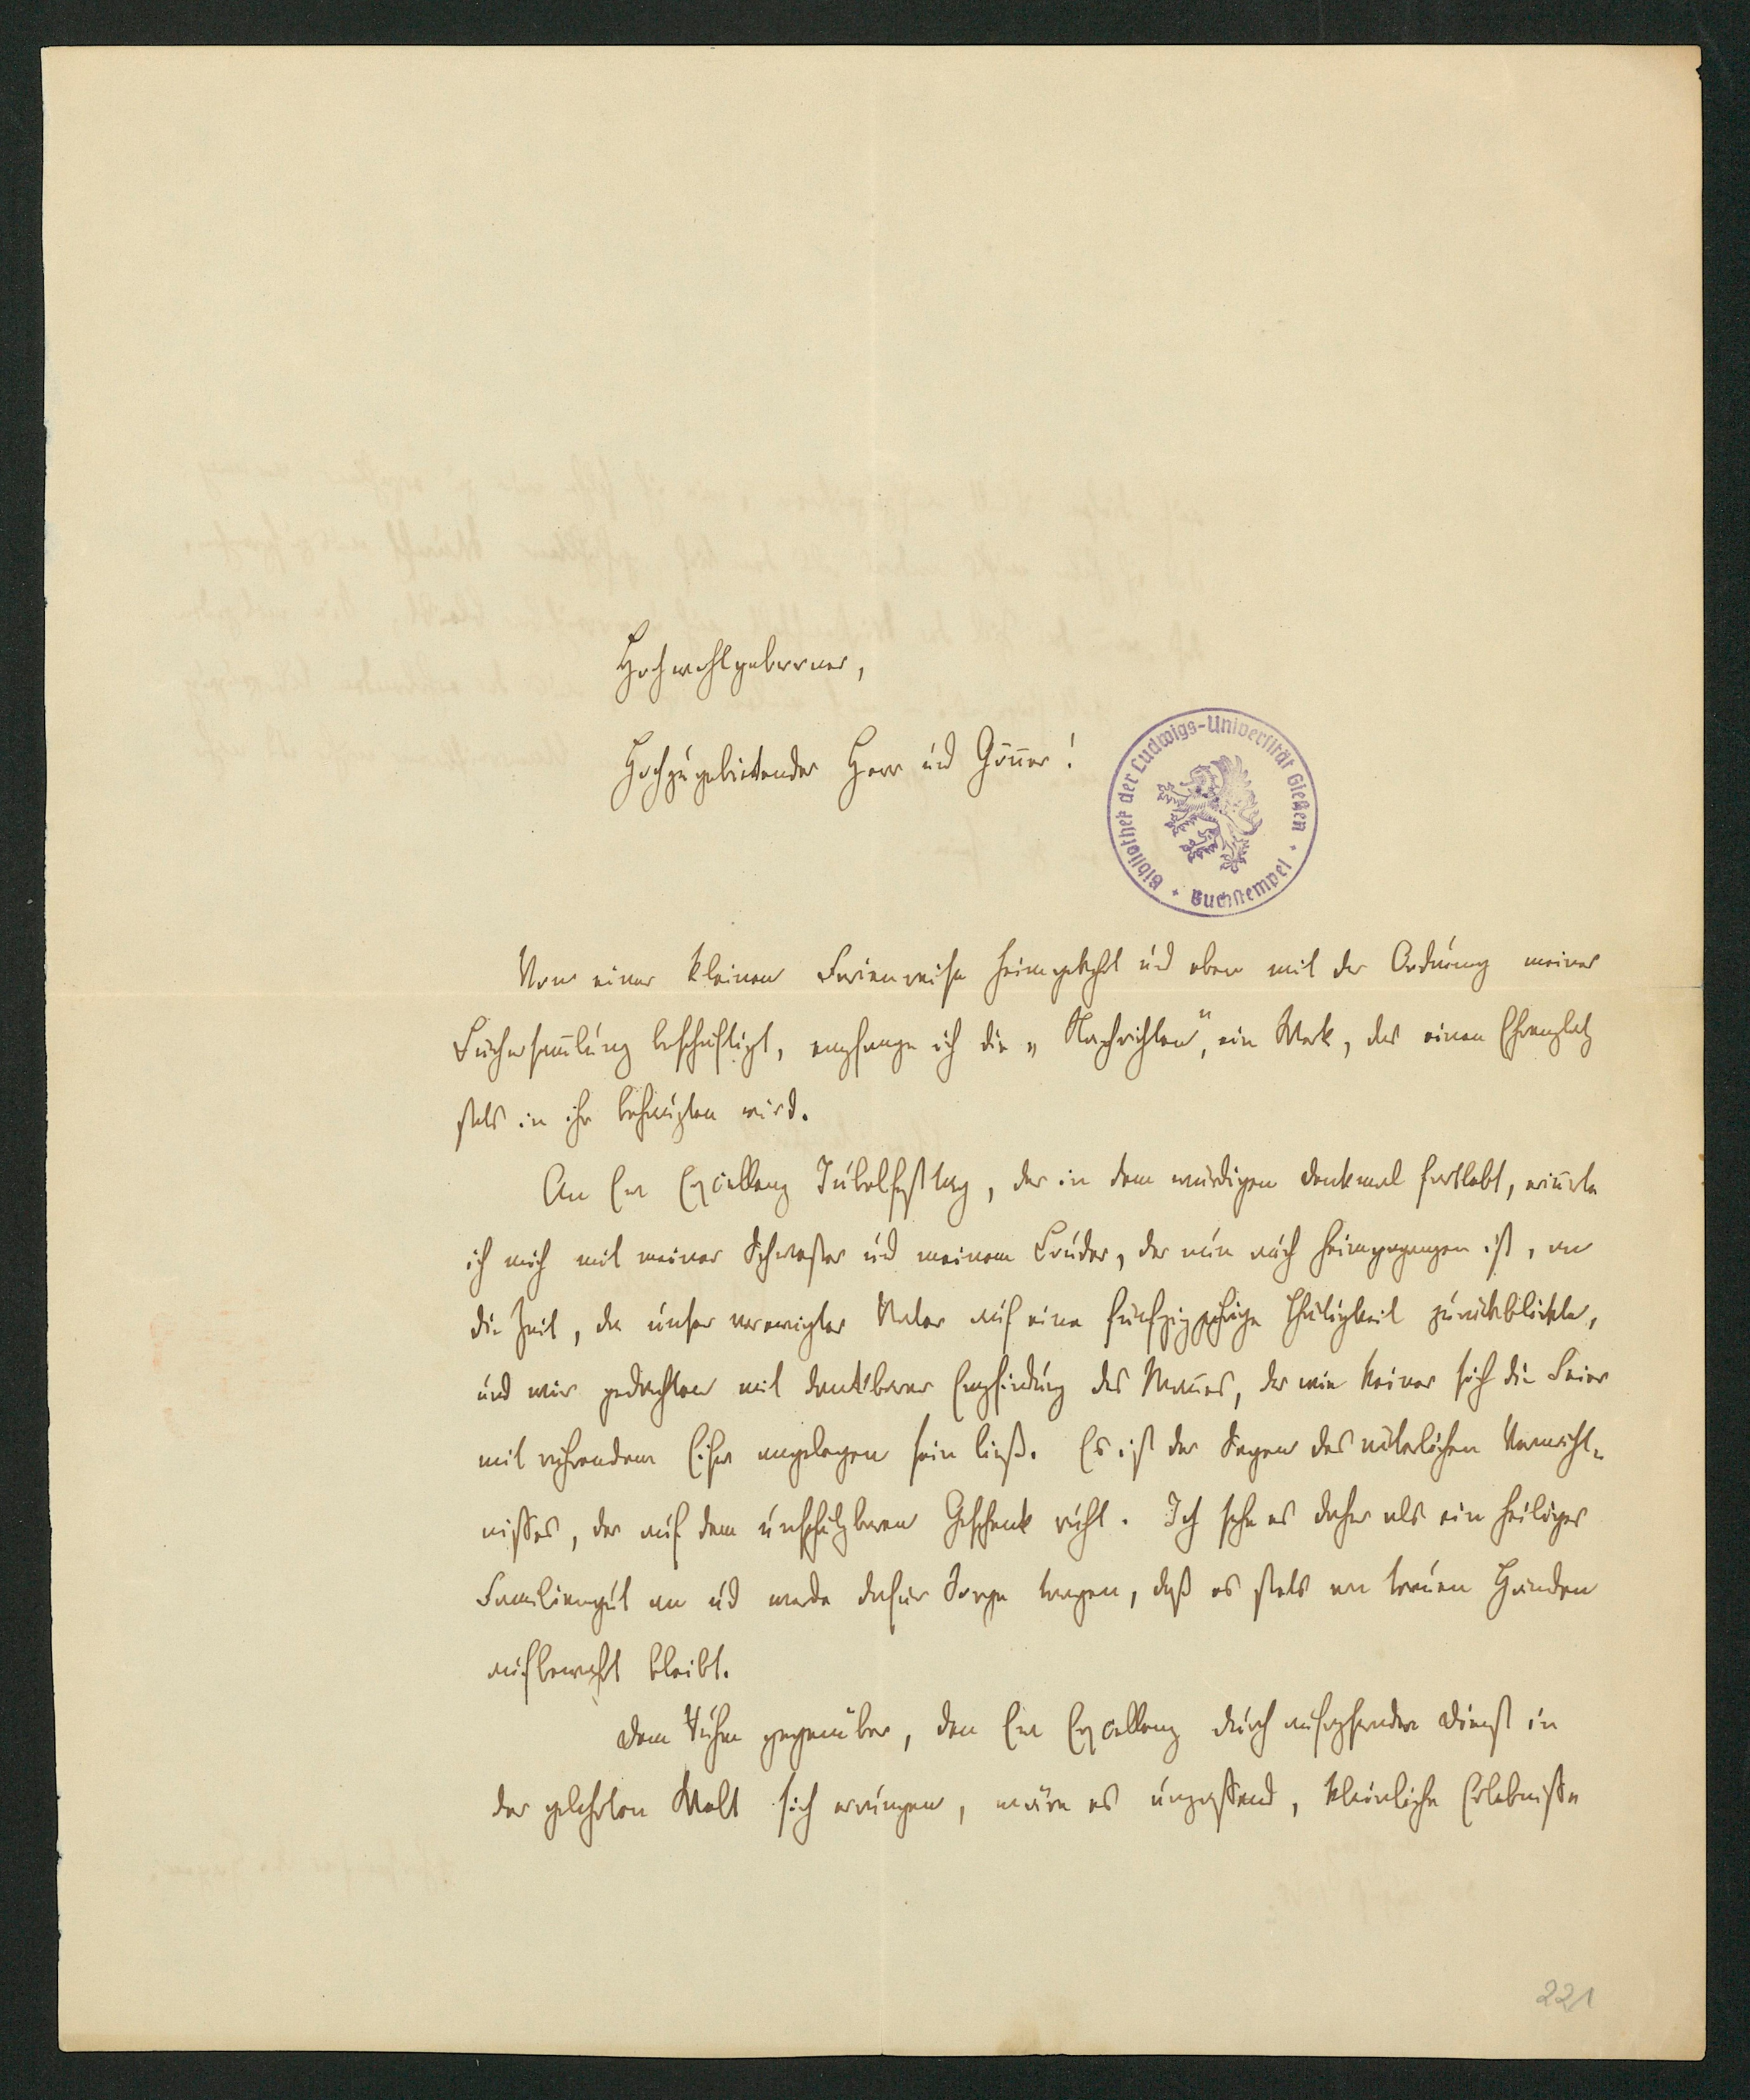 Hochwohlgeborner,
Hochzugebietender Herr und Gönner!
Bibliothek der Ludwigs-Universität Gießen
Buchstempel
Von einer kleinen Ferienreise heimgekehrt und eben mit der Ordnung meiner
Büchersam̄lung beschäftigt, empfange ich die „Nachrichten“, ein Werk, das einen Ehrenplatz
stets in ihr behaupten wird.
An Ew Excellenz Jubelfesttag, der in dem würdigen Denkmal fortlebt, erin̄erte
ich mich mit meiner Schwester und meinem Bruder, der nun auch heimgegangen ist, an
die Zeit, da unser verewigter Vater auf eine fünfzigjährige Thätigkeit zurückblickte,
und wir gedachten mit dankbarer Empfindung des Man̄es, der wie keiner sich die Feier
mit rührendem Eifer angelegen sein ließ. Es ist der Segen des väterlichen Vermächt-
nisses, der auf dem unschätzbaren Geschenk ruht. Ich sehe es daher als ein heiliges
Familiengut an und werde dafür Sorge tragen, daß es stets in treuen Händen
aufbewahrt bleibt.
Dem Ruhm gegenüber, den Ew Excellenz durch aufopfernden Dienst in
der gelehrten Welt sich errungen, wäre es unpassend, kleinliche Erlebnisse
221